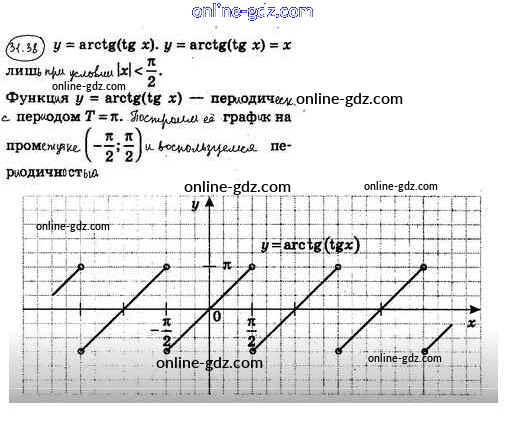 online-gdz.com
31.38 y = arctg(tg x). y = arctg(tg x) = x
лишь при условии |x| < π/2.
online-gdz.com
Функция y = arctg(tg x) — периодическ online-gdz.com
с периодом T = π. Построим её график на
промежутке (−π/2; π/2) и воспользуемся пе-
риодичностью
online-gdz.com online-gdz.com
online-gdz.com y
y = arctg(tgx)
π
−π/2 0 π/2 x
online-gdz.com online-gdz.com